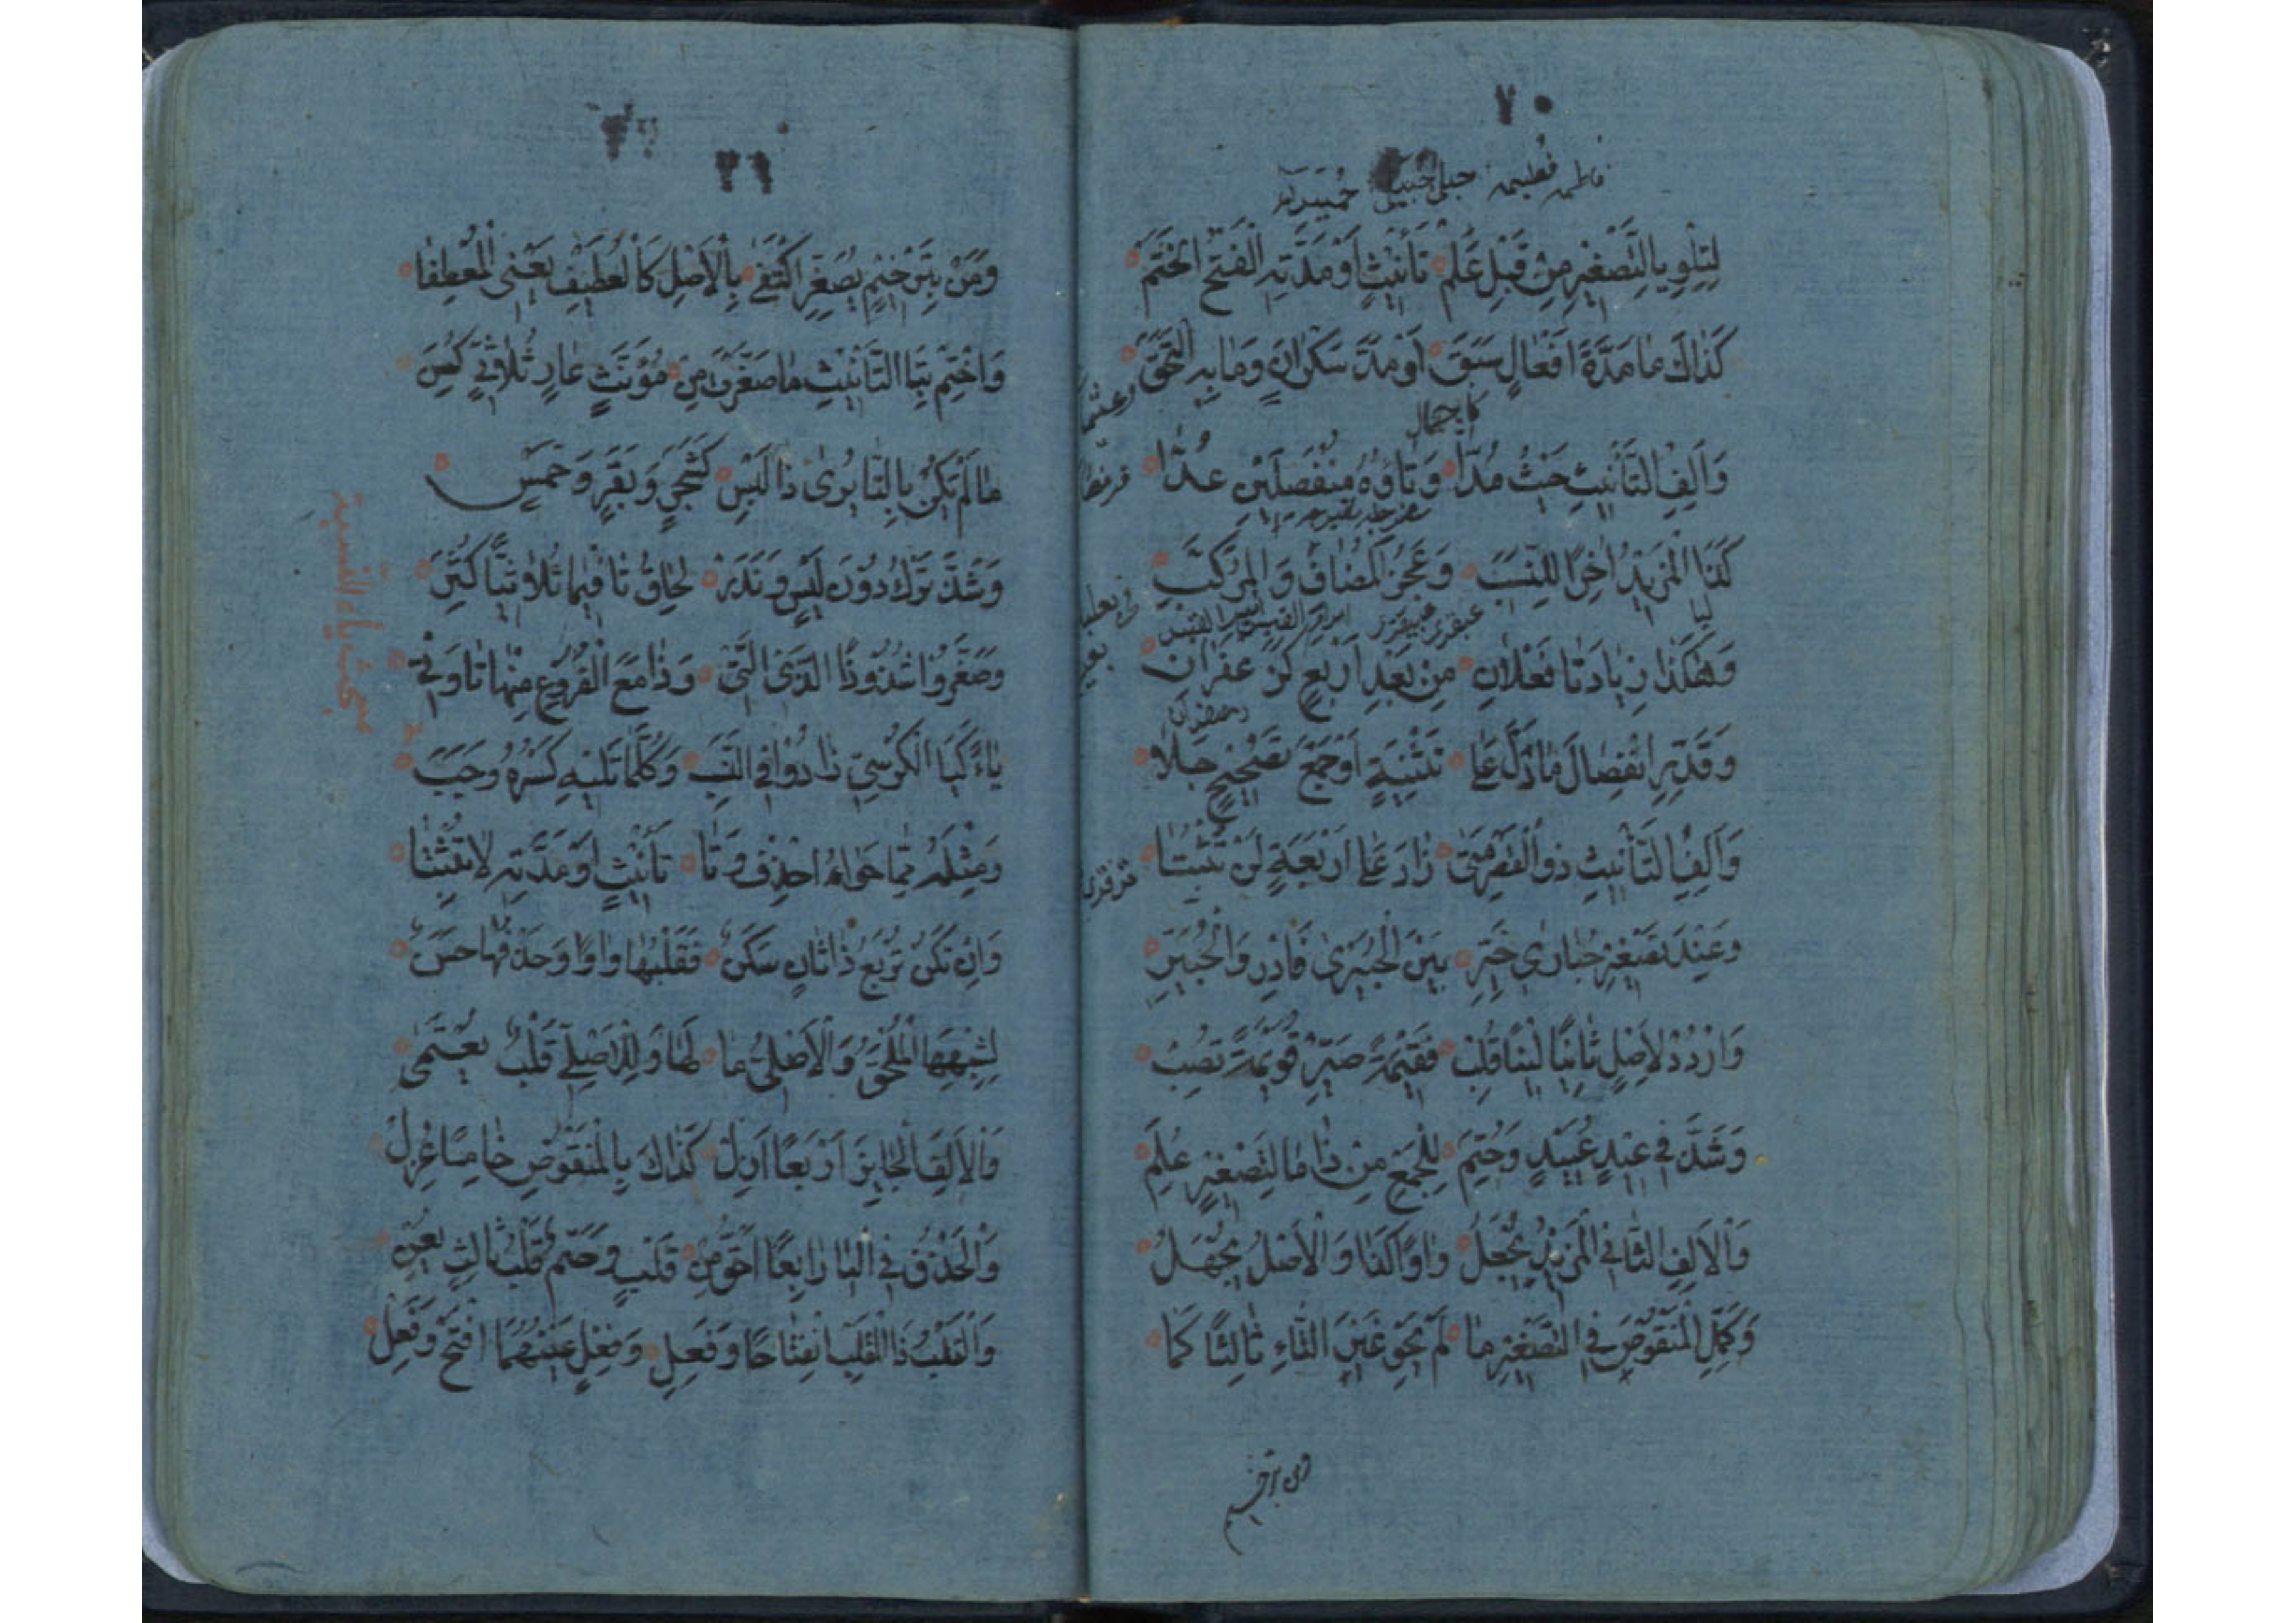 ٧٠
فاطمه فطيمه حبلى حبيلى حميراء
لِتِلْوِ يَا التَّصْغِيرِ مِنْ قَبْلِ عَلَمْ تَأْنِيثٍ اَوْ مَدَّتِهِ الْفَتْحُ انْحَتَمْ
كَذَاكَ مَا مَدَّةَ اَفْعَالٍ سَبَقْ اَوْ مَدَّ سَكْرَانَ وَمَا بِهِ الْتَحَقْ
كاجمال
وَاَلِفُ التَّأْنِيثِ حَيْثُ مُدَّا وَتَاؤُهُ مُنْفَصِلَيْنِ عُدَّا
كَذَا الْمَزِيدُ اٰخِرًا لِلنَّسَبِ وَعَجُزُ الْمُضَافِ وَالْمُرَكَّبِ
عبقرى عبيقرى امرؤ القيس
وَهٰكَذَا زِيَادَتَا فَعْلَانِ مِنْ بَعْدِ اَرْبَعٍ كَزَعْفَرَانِ
وَقَدِّرِ انْفِصَالَ مَا دَلَّ عَلىٰ تَثْنِيَةٍ اَوْ جَمْعِ تَصْحِيحٍ جَلَا
وَاَلِفُ التَّأْنِيثِ ذُو الْقَصْرِ مَتىٰ زَادَ عَلىٰ اَرْبَعَةٍ لَنْ تَثْبُتَا
وَعِنْدَ تَصْغِيرِ حُبَارٰى خَيِّرِ بَيْنَ الْحُبَيْرٰى فَادْرِ وَالْحُبَيِّرِ
وَارْدُدْ لِاَصْلٍ ثَانِيًا لَيْنًا قُلِبْ فَقِيمَةً صَيِّرْ قُوَيْمَةً تُصِبْ
وَشَذَّ فِى عِيدٍ عُيَيْدٌ وَحُتِمْ لِلْجَمْعِ مِنْ ذَا مَا لِتَصْغِيرٍ عُلِمْ
وَالْاَلِفُ الثَّانِى الْمَزِيدُ يُجْعَلُ وَاوًا كَذَا وَالْاَصْلُ يُجْهَلُ
وَكَمِّلِ الْمَنْقُوصَ فِى التَّصْغِيرِ مَا لَمْ يَحْوِ غَيْرَ التَّاءِ ثَالِثًا كَمَا
ومن بترخيم
وَمَنْ بِتَرْخِيمٍ يُصَغِّرُ اكْتَفىٰ بِالْاَصْلِ كَالْعُطَيْفِ يَعْنِى الْمِعْطَفَا
وَاخْتِمْ بِتَا التَّأْنِيثِ مَا صَغَّرْتَ مِنْ مُؤَنَّثٍ عَارٍ ثُلَاثِىٍّ كَسِنّ
مَا لَمْ يَكُنْ بِالتَّا يُرىٰ ذَا لَبْسِ كَشَجَرٍ وَبَقَرٍ وَخَمْسِ
وَشَذَّ تَرْكٌ دُونَ لَبْسٍ وَنَدَرْ لِحَاقُ تَا فِيمَا ثُلَاثِيًّا كَثَرْ
وَصَغَّرُوا شُذُوذًا الَّذِى الَّتِى وَذَا مَعَ الْفُرُوعِ مِنْهَا تَا وَتِى
مبحث ياء النسبة
يَاءً كَيَا الْكُرْسِىِّ زَادُوا فِى النَّسَبْ وَكُلُّمَا تَلِيهِ كَسْرُهُ وَجَبْ
وَمِثْلَهُ مِمَّا حَوَاهُ احْذِفْ وَتَا تَأْنِيثٍ اَوْ مَدَّتِهِ لَا تُثْبِتَا
وَاِنْ تَكُنْ تَرْبَعُ ذَا ثَانٍ سَكَنْ فَقَلْبُهَا وَاوًا وَحَذْفُهَا حَسَنْ
لِشِبْهِهَا الْمُلْحَقِ وَالْاَصْلِىِّ مَا لَهَا وَلِلْاَصْلِىِّ قَلْبٌ يُعْتَمىٰ
وَالْاَلِفَ الْجَايِزَ اَرْبَعًا اَزِلْ كَذَاكَ يَا الْمَنْقُوصِ خَامِسًا عُزِلْ
وَالْحَذْفُ فِى الْيَا رَابِعًا اَحَقُّ مِنْ قَلْبٍ وَحَتْمٌ قَلْبُ ثَالِثٍ يَعِنّ
وَاَوْلِ ذَا الْقَلْبِ انْفِتَاحًا وَفَعِلْ وَفُعِلٌ عَيْنَهُمَا افْتَحْ وَفِعِلْ